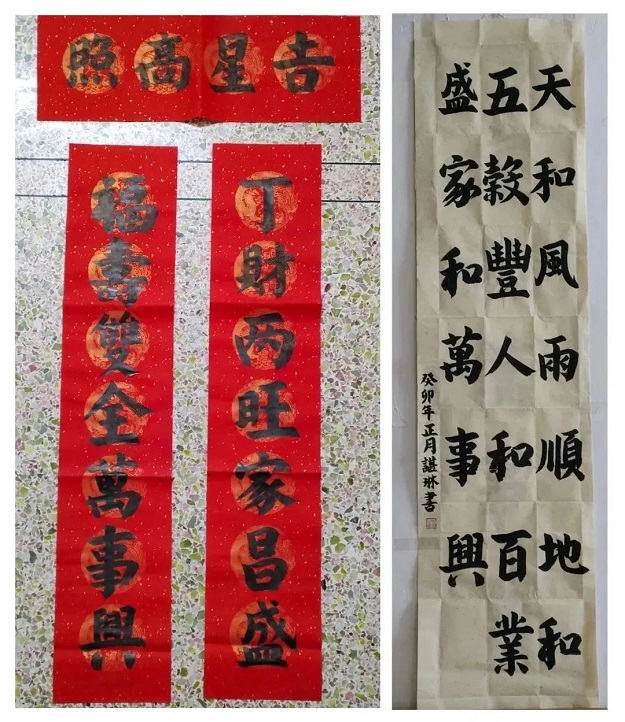 吉星高照
丁財两旺家昌盛
福壽雙全萬事興
天和風雨順地和
五穀豐人和百業
盛家和萬事興
癸卯年正月諶琳書